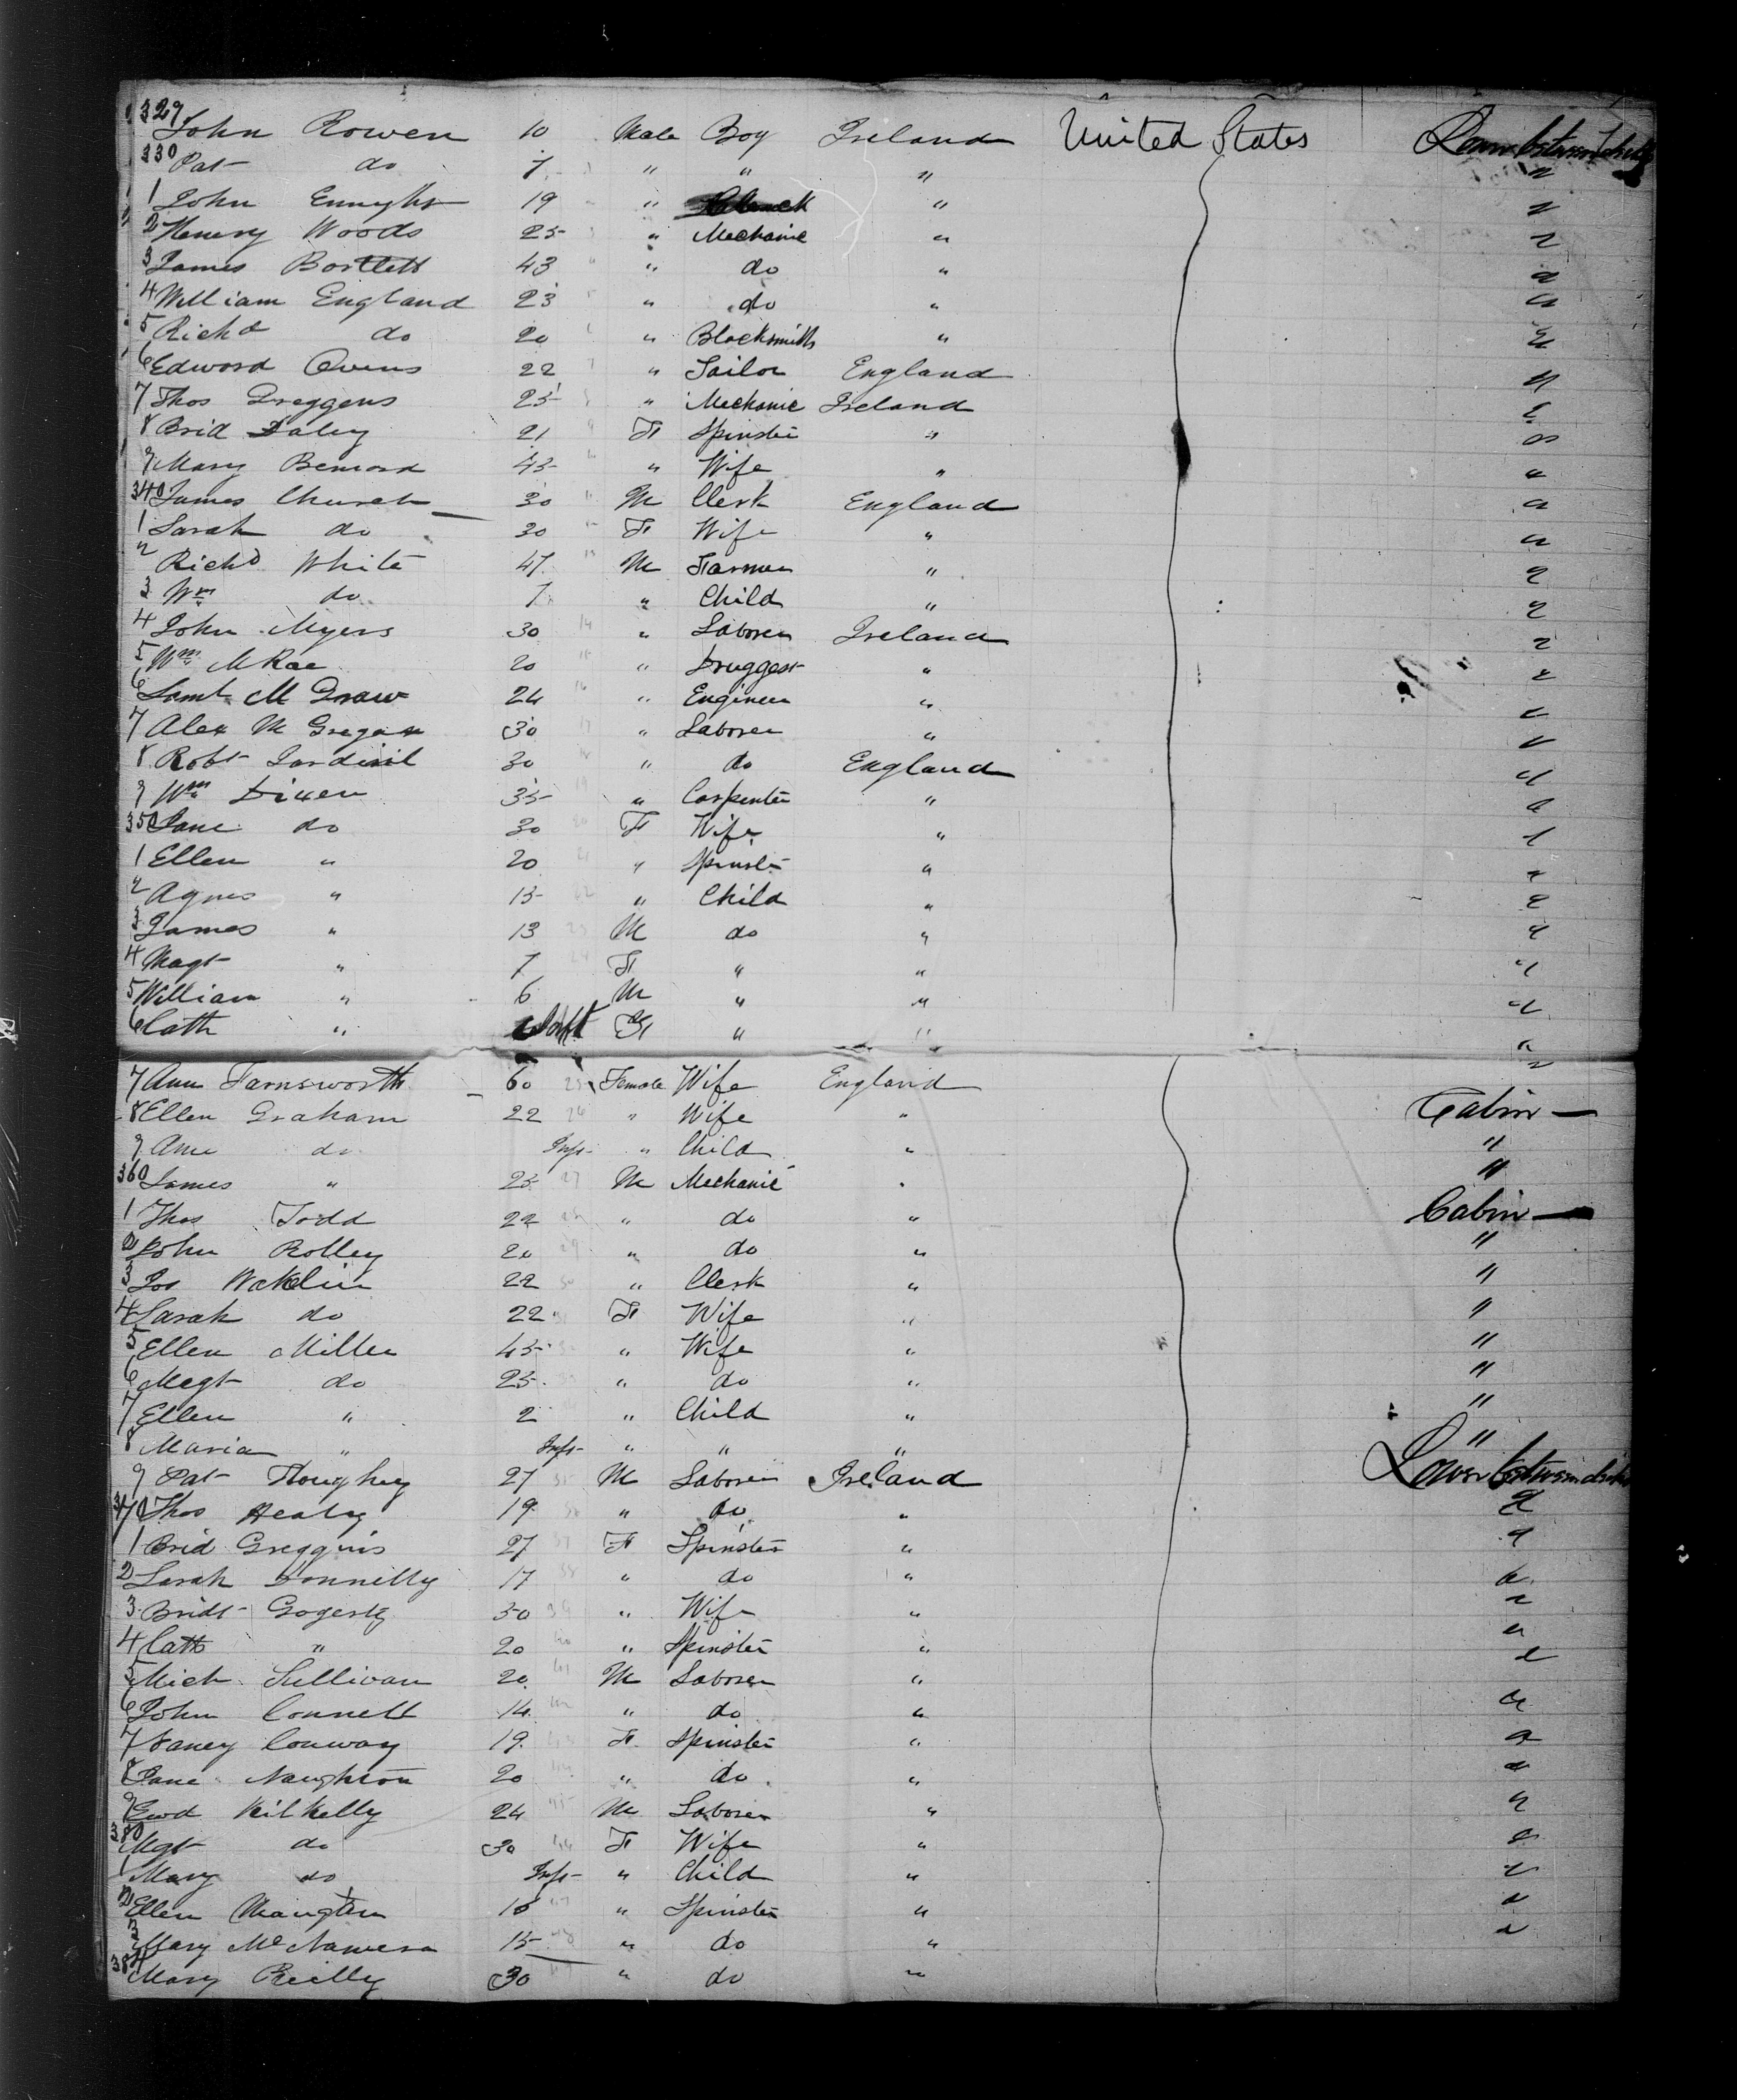 329 John Rowen 10 Male Boy Ireland United States
330 Pat do 7 " " " "
1 John 19 " " "
2 Henery Woods 25 " Mechanic " "
3 James Bartlett 43 " do " "
4 William England 23 " do " "
5 Richd do 20 " Blacksmith " "
6 Edward Owens 22 " Sailor England "
7 Thos Greggens 25 " Mechanic Ireland "
8 Brid Daley 21 F Spinster " "
9 Mary 45 " Wife " "
340 James Church 30 M Clerk England "
1 Sarah do 30 F Wife " "
2 Richd White 47 M Farmer " "
3 Wm do 7 " Child " "
4 John Myers 30 " Laborer Ireland "
5 Wm McRae 20 " Druggest " "
6 Saml M Graw 24 " Engineer " "
7 Alex Mc Gregor 30 " Laborer " "
8 Robt 30 " do England "
9 Wm Dixen 35 " Carpenter " "
350 Jane do 30 F Wife " "
1 Ellen " 20 " Spinster " "
2 Agnes " 15 " Child " "
3 James " 13 M do " "
4 Magt " 7 F " " "
5 William " 6 M " " "
6 Cath " Inft F " " "
7 Ann Farnsworth 60 Female Wife England "
8 Ellen Graham 22 " Wife " Cabin
9 Ann do Inft " Child " "
360 James " 25 M Mechanic " "
1 Thos Todd 22 " do " Cabin
2 John Rolley 20 " do " "
3 Jos Waklin 22 " Clerk " "
4 Sarah do 22 F Wife " "
5 Ellen Miller 45 " Wife " "
6 Megt do 25 " do " "
7 Ellen " 2 " Child " "
8 Maria " Inft " " " "
9 Pat Floughey 27 M Laborer Ireland Lower between decks
370 Thos Healey 19 " do " "
1 Brid Greggins 27 F Spinster " "
2 Sarah Donnelly 17 " do " "
3 Bridt Gogerty 50 " Wife " "
4 Cath " 20 " Spinster " "
5 Mich Sullivan 20 M Laborer " "
6 John Connell 14 " do " "
7 Nancy Conway 19 F Spinster " "
8 Jane Naughton 20 " do " "
9 Ewd Kilkelly 24 M Laborer " "
380 Mgt do 30 F Wife " "
1 Mary do Inft " Child " "
2 Ellen 18 " Spinster " "
3 Mary Mc Namera 15 " do " "
384 Mary Reilly 30 " do "